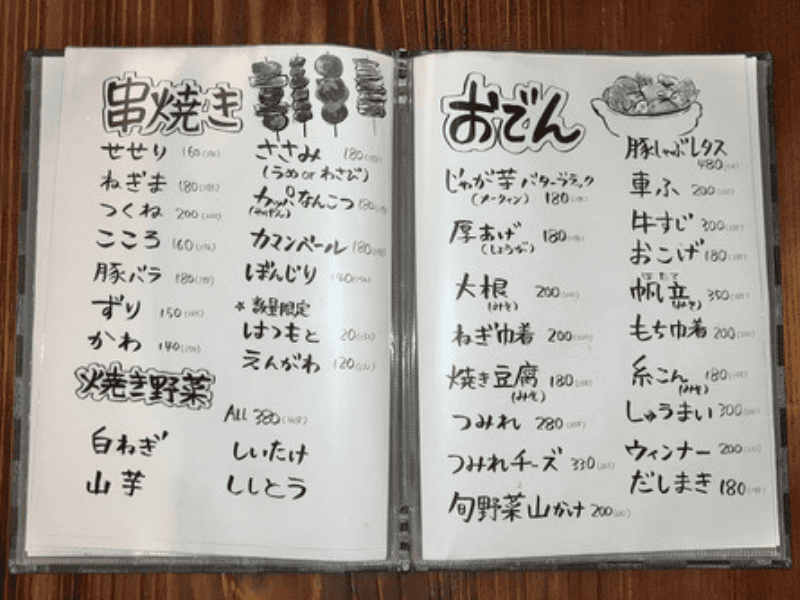 串焼き
せせり 160
ねぎま 180
つくね 200
こころ 160
豚バラ 180
ずり 150
かわ 140
ささみ 180
(うめorわさび)
カッパなんこつ
カマンベール 180
ぼんじり
*数量限定
はつもと
えんがわ 120
焼き野菜
All 380
白ねぎ
山芋
しいたけ
ししとう
おでん
じゃが芋バターブラック
(メークイン) 180
厚あげ 180
(しょうが)
大根 200
(みそ)
ねぎ巾着 200
焼き豆腐 180
(みそ)
つみれ 280
つみれチーズ 330
旬野菜山かけ 200
豚しゃぶレタス
480
車ふ 200
牛すじ 300
おこげ 180
ほたて
帆立 350
(みそ)
もち巾着 200
糸こん 180
(みそ)
しゅうまい 300
ウィンナー 200
だしまき 180